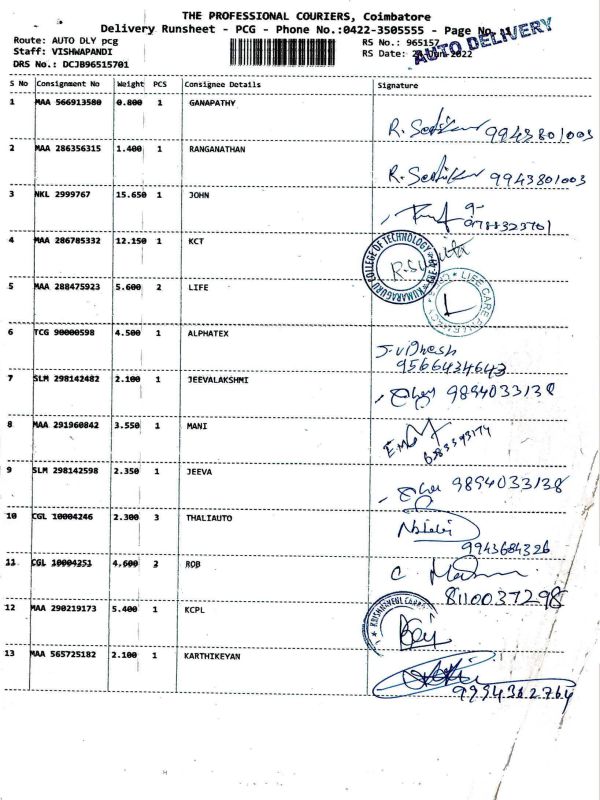 THE PROFESSIONAL COURIERS, Coimbatore
Delivery Runsheet - PCG - Phone No.:0422-3505555 - Page No.
AUTO DELIVERY
Route: AUTO DLY pcg
RS No.: 965157
Staff: VISHWAPANDI
RS Date: Jun-2022
DRS No.: DCJB96515701
S No Consignment No Weight PCS Consignee Details Signature
1 MAA 566913580 0.800 1 GANAPATHY
9943801003
2 MAA 286356315 1.400 1 RANGANATHAN
9943801003
3 NKL 2999767 15.650 1 JOHN
4 MAA 286785332 12.150 1 KCT
KUMARAGURU COLLEGE OF TECHNOLOGY
5 MAA 288475923 5.600 2 LIFE
LIFE CARE PHARMACY
6 TCG 90000598 4.500 1 ALPHATEX
J. Vighesh
9566434643
7 SLM 298142482 2.100 1 JEEVALAKSHMI
9894033138
8 MAA 291960842 3.550 1 MANI
9 SLM 298142598 2.350 1 JEEVA
9894033138
10 CGL 10004246 2.300 3 THALIAUTO
9943684326
11 CGL 10004251 4.600 2 ROB
8110037298
12 MAA 290219173 5.400 1 KCPL
13 MAA 565725182 2.100 1 KARTHIKEYAN
9994362764